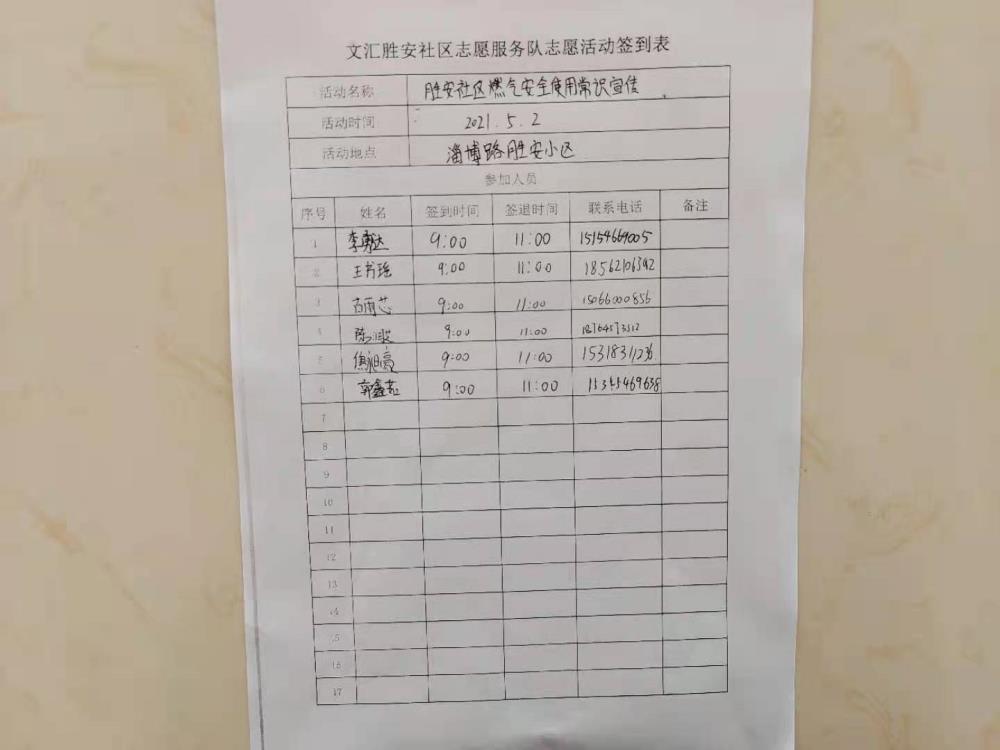 文汇胜安社区志愿服务队志愿活动签到表
活动名称 胜安社区燃气安全使用常识宣传
活动时间 2021.5.2
活动地点 淄博路胜安小区
参加人员
序号 姓名 签到时间 签退时间 联系电话 备注
1 李勇达 9:00 11:00 15154669005
2 王书瑶 9:00 11:00 18562106392
3 古雨芯 9:00 11:00 15066000856
4 9:00 11:00
5 9:00 11:00
6 郭鑫若 9:00 11:00 15345469638
7
8
9
10
11
12
13
14
15
16
17